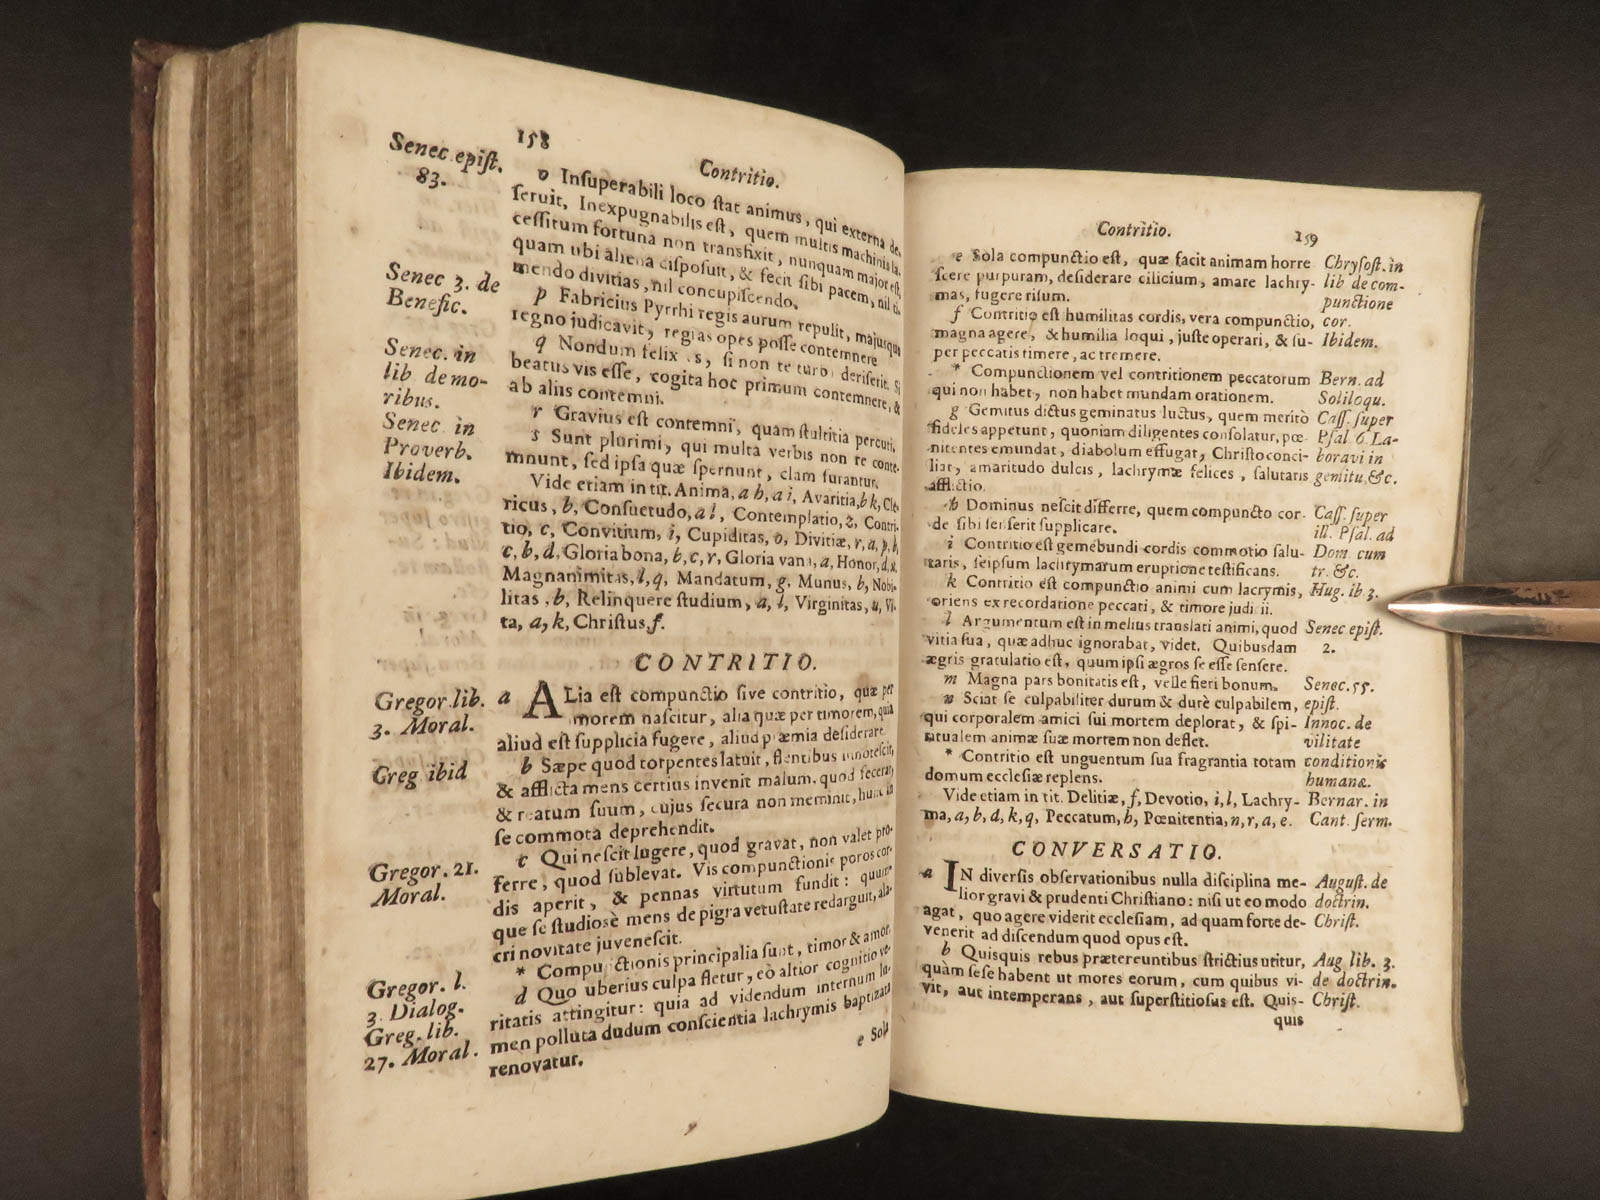 158
Contritio.
Senec. epiſt.
83.
o Inſuperabili loco ſtat animus, qui externa de-
ſeruit, Inexpugnabilis eſt, quem multis machinis la-
ceſſitum fortuna non tranſfixit, nunquam major eſt,
quam ubi aliena diſpoſuit, & fecit ſibi pacem, nil ti-
mendo divitias, nil concupiſcendo.
Senec 3. de
Benefic.
p Fabricius Pyrrhi regis aurum repulit, majusque
regno judicavit, regias opes poſſe contemnere
Senec. in
lib de mo-
ribus.
q Nondum felix s, ſi non te turb deriſerit. Si
beatus vis eſſe, cogita hoc primum contemnere, &
ab aliis contemni.
Senec in
Proverb.
Ibidem.
r Gravius eſt contemni, quam ſtultitia percuti.
s Sunt plurimi, qui multa verbis non re conte-
mnunt, ſed ipſa quæ ſpernunt, clam furantur.
Vide etiam in tit. Anima, a h, a i, Avaritia, b k, Cle-
ricus, b, Conſuetudo, a l, Contemplatio, z, Contri-
tio, c, Convitium, i, Cupiditas, o, Divitiæ, r, a, p, b,
c, b, d, Gloria bona, b, c, r, Gloria vana, a, Honor, d, x,
Magnanimitas, l, q, Mandatum, g, Munus, b, Nobi-
litas, b, Relinquere ſtudium, a, l, Virginitas, u, Vi-
ta, a, k, Chriſtus, f.
CONTRITIO.
Gregor. lib.
3. Moral.
a ALia eſt compunctio ſive contritio, quæ per
amorem naſcitur, alia quæ per timorem, quia
aliud eſt ſupplicia fugere, aliud præmia deſiderare
Greg ibid
b Sæpe quod torpentes latuit, flentibus innoteſcit,
& afflicta mens certius invenit malum, quod fecerat,
& reatum ſuum, cujus ſecura non meminit, hunc in
ſe commota deprehendit.
Gregor. 21.
Moral.
c Qui neſcit lugere, quod gravat, non valet pro-
ferre, quod ſublevat. Vis compunctionis poros cor-
dis aperit, & pennas virtutum fundit: quum-
que ſe ſtudioſè mens de pigra vetuſtate redarguit, ala-
cri novitate juveneſcit.
Gregor. l.
3 Dialog.
* Compunctionis principalia ſunt, timor & amor.
Greg. lib.
27. Moral.
d Quo uberius culpa fletur, eò altior cognitio ve-
ritatis attingitur: quia ad videndum internum lu-
men polluta dudum conſcientia lachrymis baptizata
renovatur.
e Sola
Contritio.
159
e Sola compunctio eſt, quæ facit animam horre
ſcere purpuram, deſiderare cilicium, amare lachry-
mas, fugere riſum.
Chryſoſt. in
lib de com-
punctione
cor.
f Contritio eſt humilitas cordis, vera compunctio,
magna agere, & humilia loqui, juſte operari, & ſu-
per peccatis timere, ac tremere.
Ibidem.
* Compunctionem vel contritionem peccatorum
qui non habet, non habet mundam orationem.
Bern. ad
Soliloqu.
g Gemitus dictus geminatus luctus, quem meritò
fideles appetunt, quoniam diligentes conſolatur, pœ-
nitentes emundat, diabolum effugat, Chriſto conci-
liat, amaritudo dulcis, lachrymæ felices, ſalutaris
afflictio.
Caſſ. ſuper
Pſal. 6. La-
boravi in
gemitu, &c.
h Dominus neſcit differre, quem compuncto cor-
de ſibi ſenſerit ſupplicare.
Caſſ. ſuper
ill. Pſal. ad
Dom. cum
tr. &c.
i Contritio eſt gemebundi cordis commotio ſalu-
taris, ſeipſum lachrymarum eruptione teſtificans.
k Contritio eſt compunctio animi cum lacrymis,
oriens ex recordatione peccati, & timore judicii.
Hug. ib 3.
l Argumentum eſt in melius translati animi, quod
vitia ſua, quæ adhuc ignorabat, videt. Quibusdam
ægris gratulatio eſt, quum ipſi ægros ſe eſſe ſenſere.
Senec epiſt.
2.
m Magna pars bonitatis eſt, velle fieri bonum.
Senec. 55.
epiſt.
n Sciat ſe culpabiliter durum & durè culpabilem,
qui corporalem amici ſui mortem deplorat, & ſpi-
ritualem animæ ſuæ mortem non deflet.
Innoc. de
vilitate
conditionis
humanæ.
* Contritio eſt unguentum ſua fragrantia totam
domum eccleſiæ replens.
Bernar. in
Cant. ſerm.
Vide etiam in tit. Delitiæ, f, Devotio, i, l, Lachry-
ma, a, b, d, k, q, Peccatum, h, Pœnitentia, n, r, a, e.
CONVERSATIO.
a IN diverſis obſervationibus nulla diſciplina me-
lior gravi & prudenti Chriſtiano: niſi ut eo modo
agat, quo agere viderit eccleſiam, ad quam forte de-
venerit ad diſcendum quod opus eſt.
Auguſt. de
doctrin.
Chriſt.
b Quiſquis rebus prætereuntibus ſtrictius utitur,
quàm ſeſe habent ut mores eorum, cum quibus vi-
vit, aut intemperans, aut ſuperſtitioſus eſt. Quis-
Aug lib. 3.
de doctrin.
Chriſt.
quis